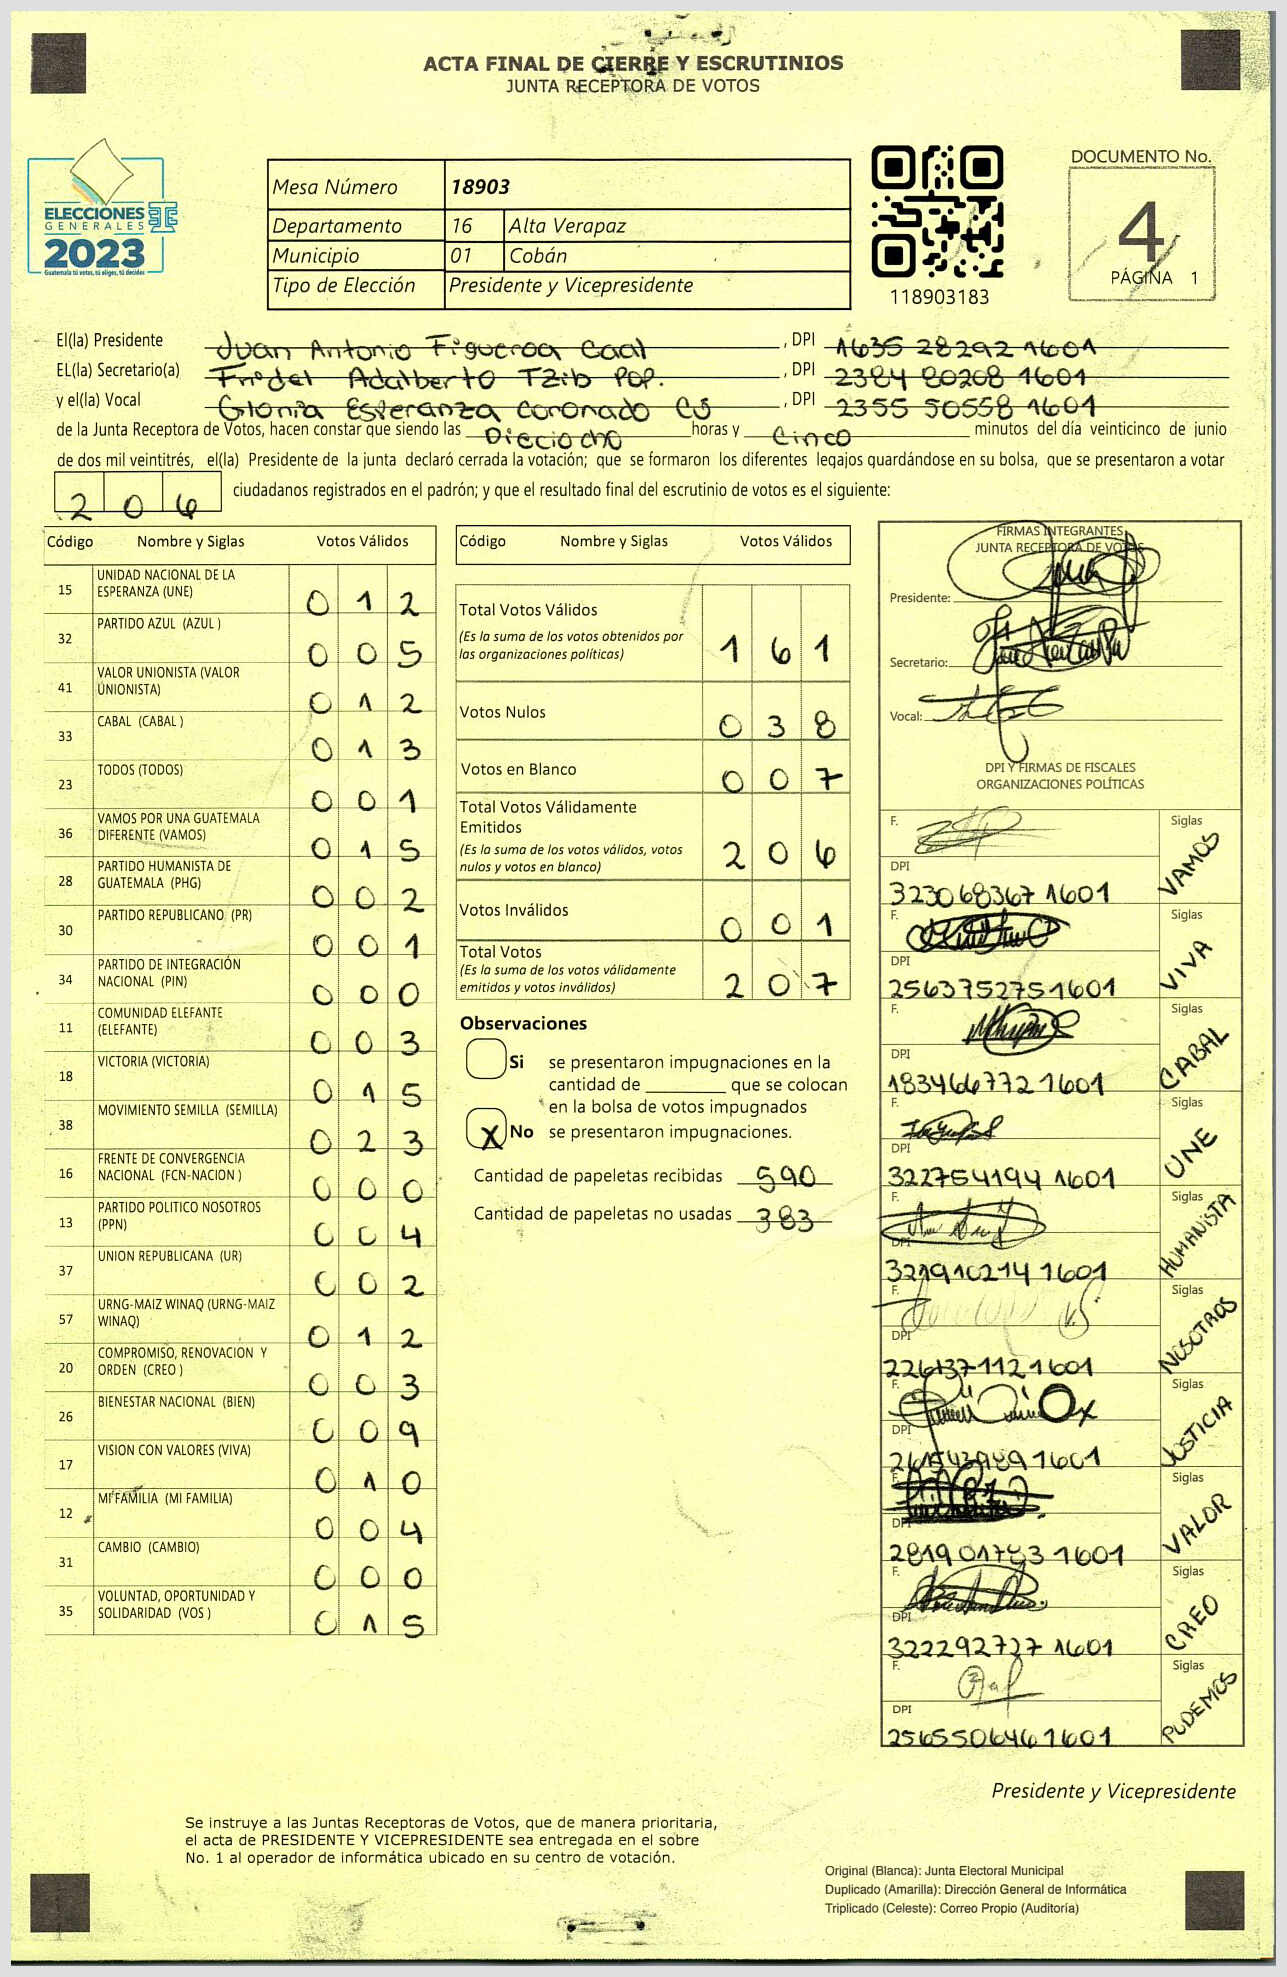 ACTA FINAL DE CIERRE Y ESCRUTINIOS
JUNTA RECEPTORA DE VOTOS
ELECCIONES
GENERALES
2023
Guatemala tú votas, tú eliges, tú decides
Mesa Número 18903
Departamento 16 Alta Verapaz
Municipio 01 Cobán
Tipo de Elección Presidente y Vicepresidente
118903183
DOCUMENTO No.
4
PÁGINA 1
El(la) Presidente Juan Antonio Figueroa Caal , DPI 1635 28292 1601
EL(la) Secretario(a) Fridel Adalberto Tzib Pop. , DPI 2384 80208 1601
y el(la) Vocal Gloria Esperanza Coronado Cú , DPI 2355 50558 1601
de la Junta Receptora de Votos, hacen constar que siendo las Dieciocho horas y Cinco minutos del día veinticinco de junio
de dos mil veintitrés, el(la) Presidente de la junta declaró cerrada la votación; que se formaron los diferentes legajos guardándose en su bolsa, que se presentaron a votar
206 ciudadanos registrados en el padrón; y que el resultado final del escrutinio de votos es el siguiente:
Código Nombre y Siglas Votos Válidos
15 UNIDAD NACIONAL DE LA ESPERANZA (UNE) 012
32 PARTIDO AZUL (AZUL ) 005
41 VALOR UNIONISTA (VALOR UNIONISTA) 012
33 CABAL (CABAL ) 013
23 TODOS (TODOS) 001
36 VAMOS POR UNA GUATEMALA DIFERENTE (VAMOS) 015
28 PARTIDO HUMANISTA DE GUATEMALA (PHG) 002
30 PARTIDO REPUBLICANO (PR) 001
34 PARTIDO DE INTEGRACIÓN NACIONAL (PIN) 000
11 COMUNIDAD ELEFANTE (ELEFANTE) 003
18 VICTORIA (VICTORIA) 015
38 MOVIMIENTO SEMILLA (SEMILLA) 023
16 FRENTE DE CONVERGENCIA NACIONAL (FCN-NACION ) 000
13 PARTIDO POLITICO NOSOTROS (PPN) 004
37 UNION REPUBLICANA (UR) 002
57 URNG-MAIZ WINAQ (URNG-MAIZ WINAQ) 012
20 COMPROMISO, RENOVACION Y ORDEN (CREO ) 003
26 BIENESTAR NACIONAL (BIEN) 009
17 VISION CON VALORES (VIVA) 010
12 MI FAMILIA (MI FAMILIA) 004
31 CAMBIO (CAMBIO) 000
35 VOLUNTAD, OPORTUNIDAD Y SOLIDARIDAD (VOS ) 015
Código Nombre y Siglas Votos Válidos
Total Votos Válidos 161
(Es la suma de los votos obtenidos por
las organizaciones políticas)
Votos Nulos 038
Votos en Blanco 007
Total Votos Válidamente
Emitidos 206
(Es la suma de los votos válidos, votos
nulos y votos en blanco)
Votos Inválidos 001
Total Votos 207
(Es la suma de los votos válidamente
emitidos y votos inválidos)
Observaciones
Si se presentaron impugnaciones en la
cantidad de ________ que se colocan
en la bolsa de votos impugnados
X No se presentaron impugnaciones.
Cantidad de papeletas recibidas 590
Cantidad de papeletas no usadas 383
FIRMAS INTEGRANTES
JUNTA RECEPTORA DE VOTOS
Presidente:
Secretario:
Vocal:
DPI Y FIRMAS DE FISCALES
ORGANIZACIONES POLÍTICAS
F. Siglas VAMOS
DPI 323068367 1601
F. Siglas VIVA
DPI 256375275 1601
F. Siglas CABAL
DPI 183466772 1601
F. Siglas UNE
DPI 322754194 1601
F. Siglas HUMANISTA
DPI 321910214 1601
F. Siglas NOSOTROS
DPI 226137112 1601
F. Siglas JUSTICIA
DPI 1601
F. Siglas VALOR
DPI 2819 01783 1601
F. Siglas CREO
DPI 322292727 1601
F. Siglas PODEMOS
DPI 256550646 1601
Presidente y Vicepresidente
Se instruye a las Juntas Receptoras de Votos, que de manera prioritaria,
el acta de PRESIDENTE Y VICEPRESIDENTE sea entregada en el sobre
No. 1 al operador de informática ubicado en su centro de votación.
Original (Blanca): Junta Electoral Municipal
Duplicado (Amarilla): Dirección General de Informática
Triplicado (Celeste): Correo Propio (Auditoría)